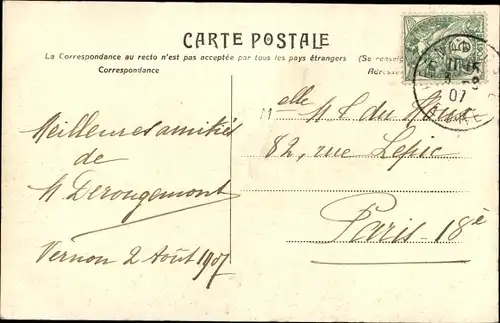 CARTE POSTALE
La Correspondance au recto n'est pas acceptée par tous les pays étrangers (Se renseign
Correspondance
Adresse
07
Melle M L du
82, rue Lepic
Paris 18e
Meilleures amitiés
de
M Derougemont
Vernon 2 Août 1907